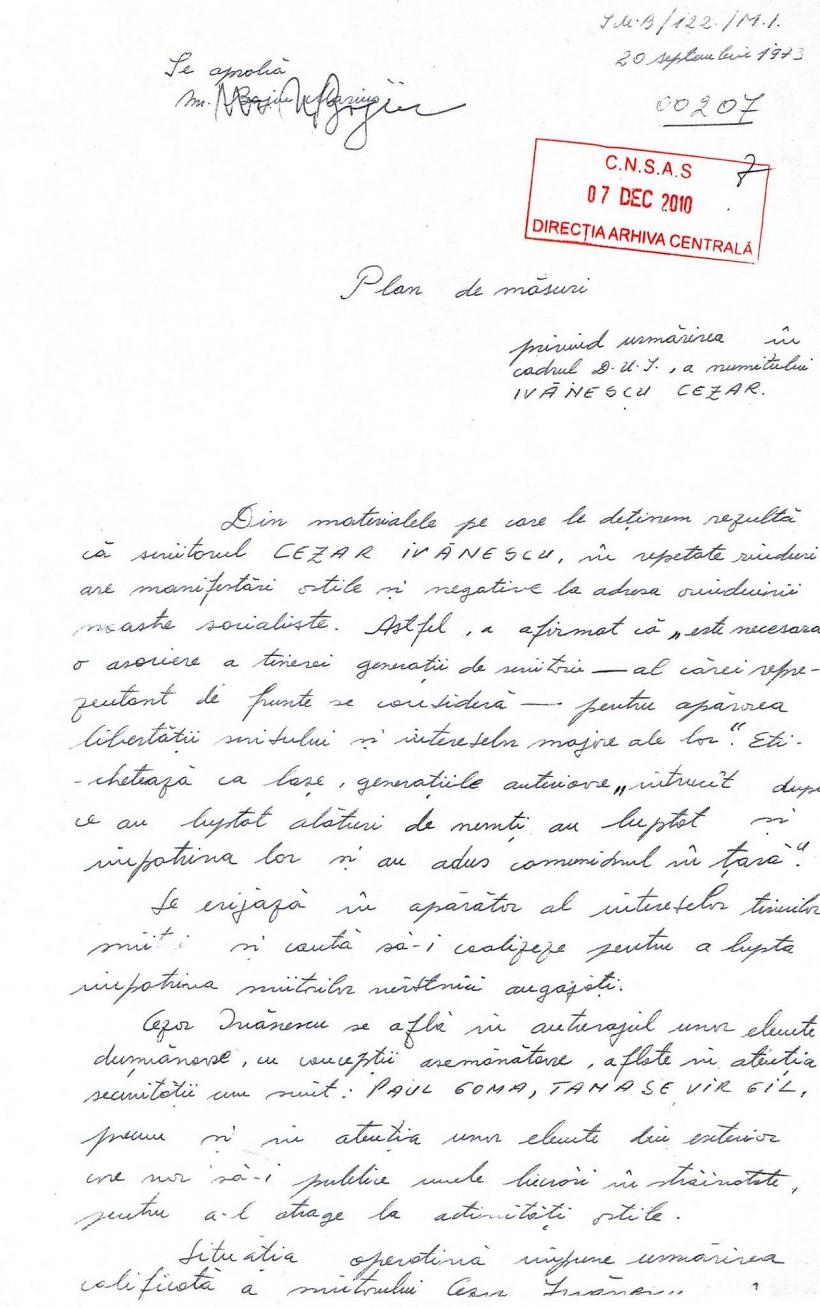 I.M.B/122./M.I.
20 septembrie 1973
Se aprobă
00207
7
C.N.S.A.S
07 DEC 2010
DIRECȚIA ARHIVA CENTRALĂ
Plan de măsuri
privind urmărirea în
cadrul D.U.I., a numitului
IVĂNESCU CEZAR.
Din materialele pe care le deținem rezultă
că scriitorul CEZAR IVĂNESCU, în repetate rînduri
are manifestări ostile și negative la adresa orînduirii
noastre socialiste. Astfel, a afirmat că „este necesara
o asociere a tinerei generații de scriitori — al cărei repre-
zentant de frunte se consideră — pentru apărarea
libertății scrisului și intereselor majore ale lor". Eti-
-chetează ca lașe, generațiile anterioare „întrucît după
ce au luptat alături de nemți au luptat și
împotriva lor și au adus comunismul în țară".
Se erijază în apărător al intereselor tinerilor
și caută să-i coalizeze pentru a lupta
împotriva scriitorilor vîrstnici angajați.
Cezar Ivănescu se află în anturajul unor elemente
dușmănoase, cu concepții asemănătoare, aflate în atenția
securității cum sînt: PAUL GOMA, TANASE VIRGIL,
precum și în atenția unor elemente din exterior
care vor să-i publice unele lucrări în străinătate,
pentru a-l atrage la activități ostile.
Situația operativă impune urmărirea
calificată a scriitorului Cezar Ivănescu